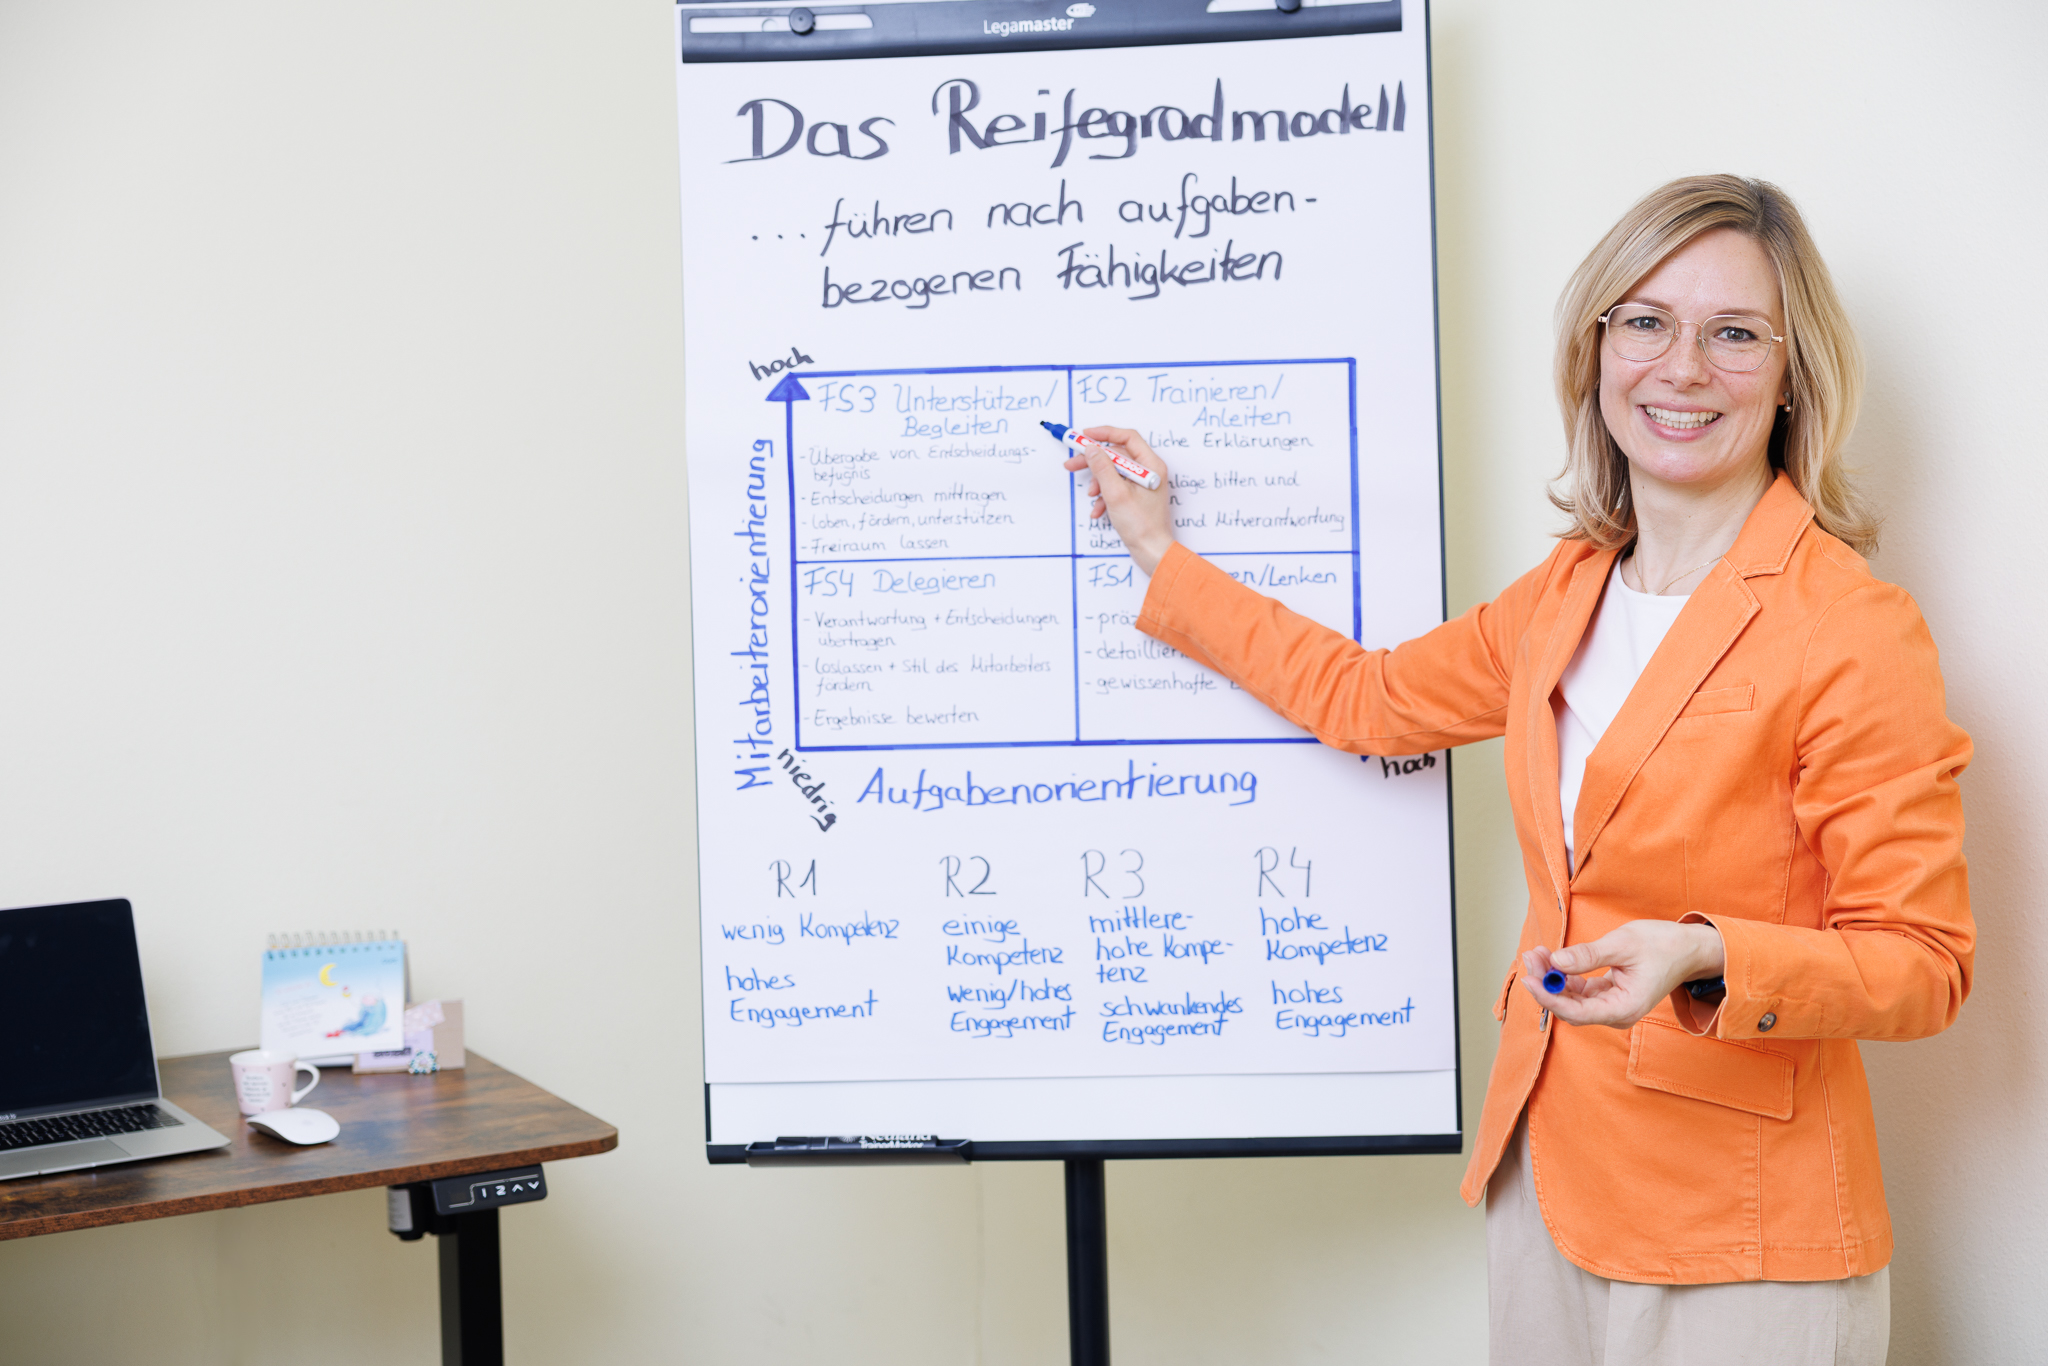 Legamaster
Das Reifegradmodell
... führen nach aufgaben-
bezogenen Fähigkeiten
hoch
Mitarbeiterorientierung
FS3 Unterstützen/
Begleiten
- Übergabe von Entscheidungs-
befugnis
- Entscheidungen mittragen
- Loben, fördern, unterstützen
- Freiraum lassen
FS2 Trainieren/
Anleiten
liche Erklärungen
läge bitten und
- Mit und Mitverantwortung
über
FS4 Delegieren
- Verantwortung + Entscheidungen
übertragen
- Loslassen + Stil des Mitarbeiters
fördern
- Ergebnisse bewerten
FS1 en/Lenken
- präz
- detaillier
- gewissenhafte
niedrig
Aufgabenorientierung
hoch
R1
wenig Kompetenz
hohes
Engagement
R2
einige
Kompetenz
wenig/hohes
Engagement
R3
mittlere-
hohe Kompe-
tenz
schwankendes
Engagement
R4
hohe
Kompetenz
hohes
Engagement